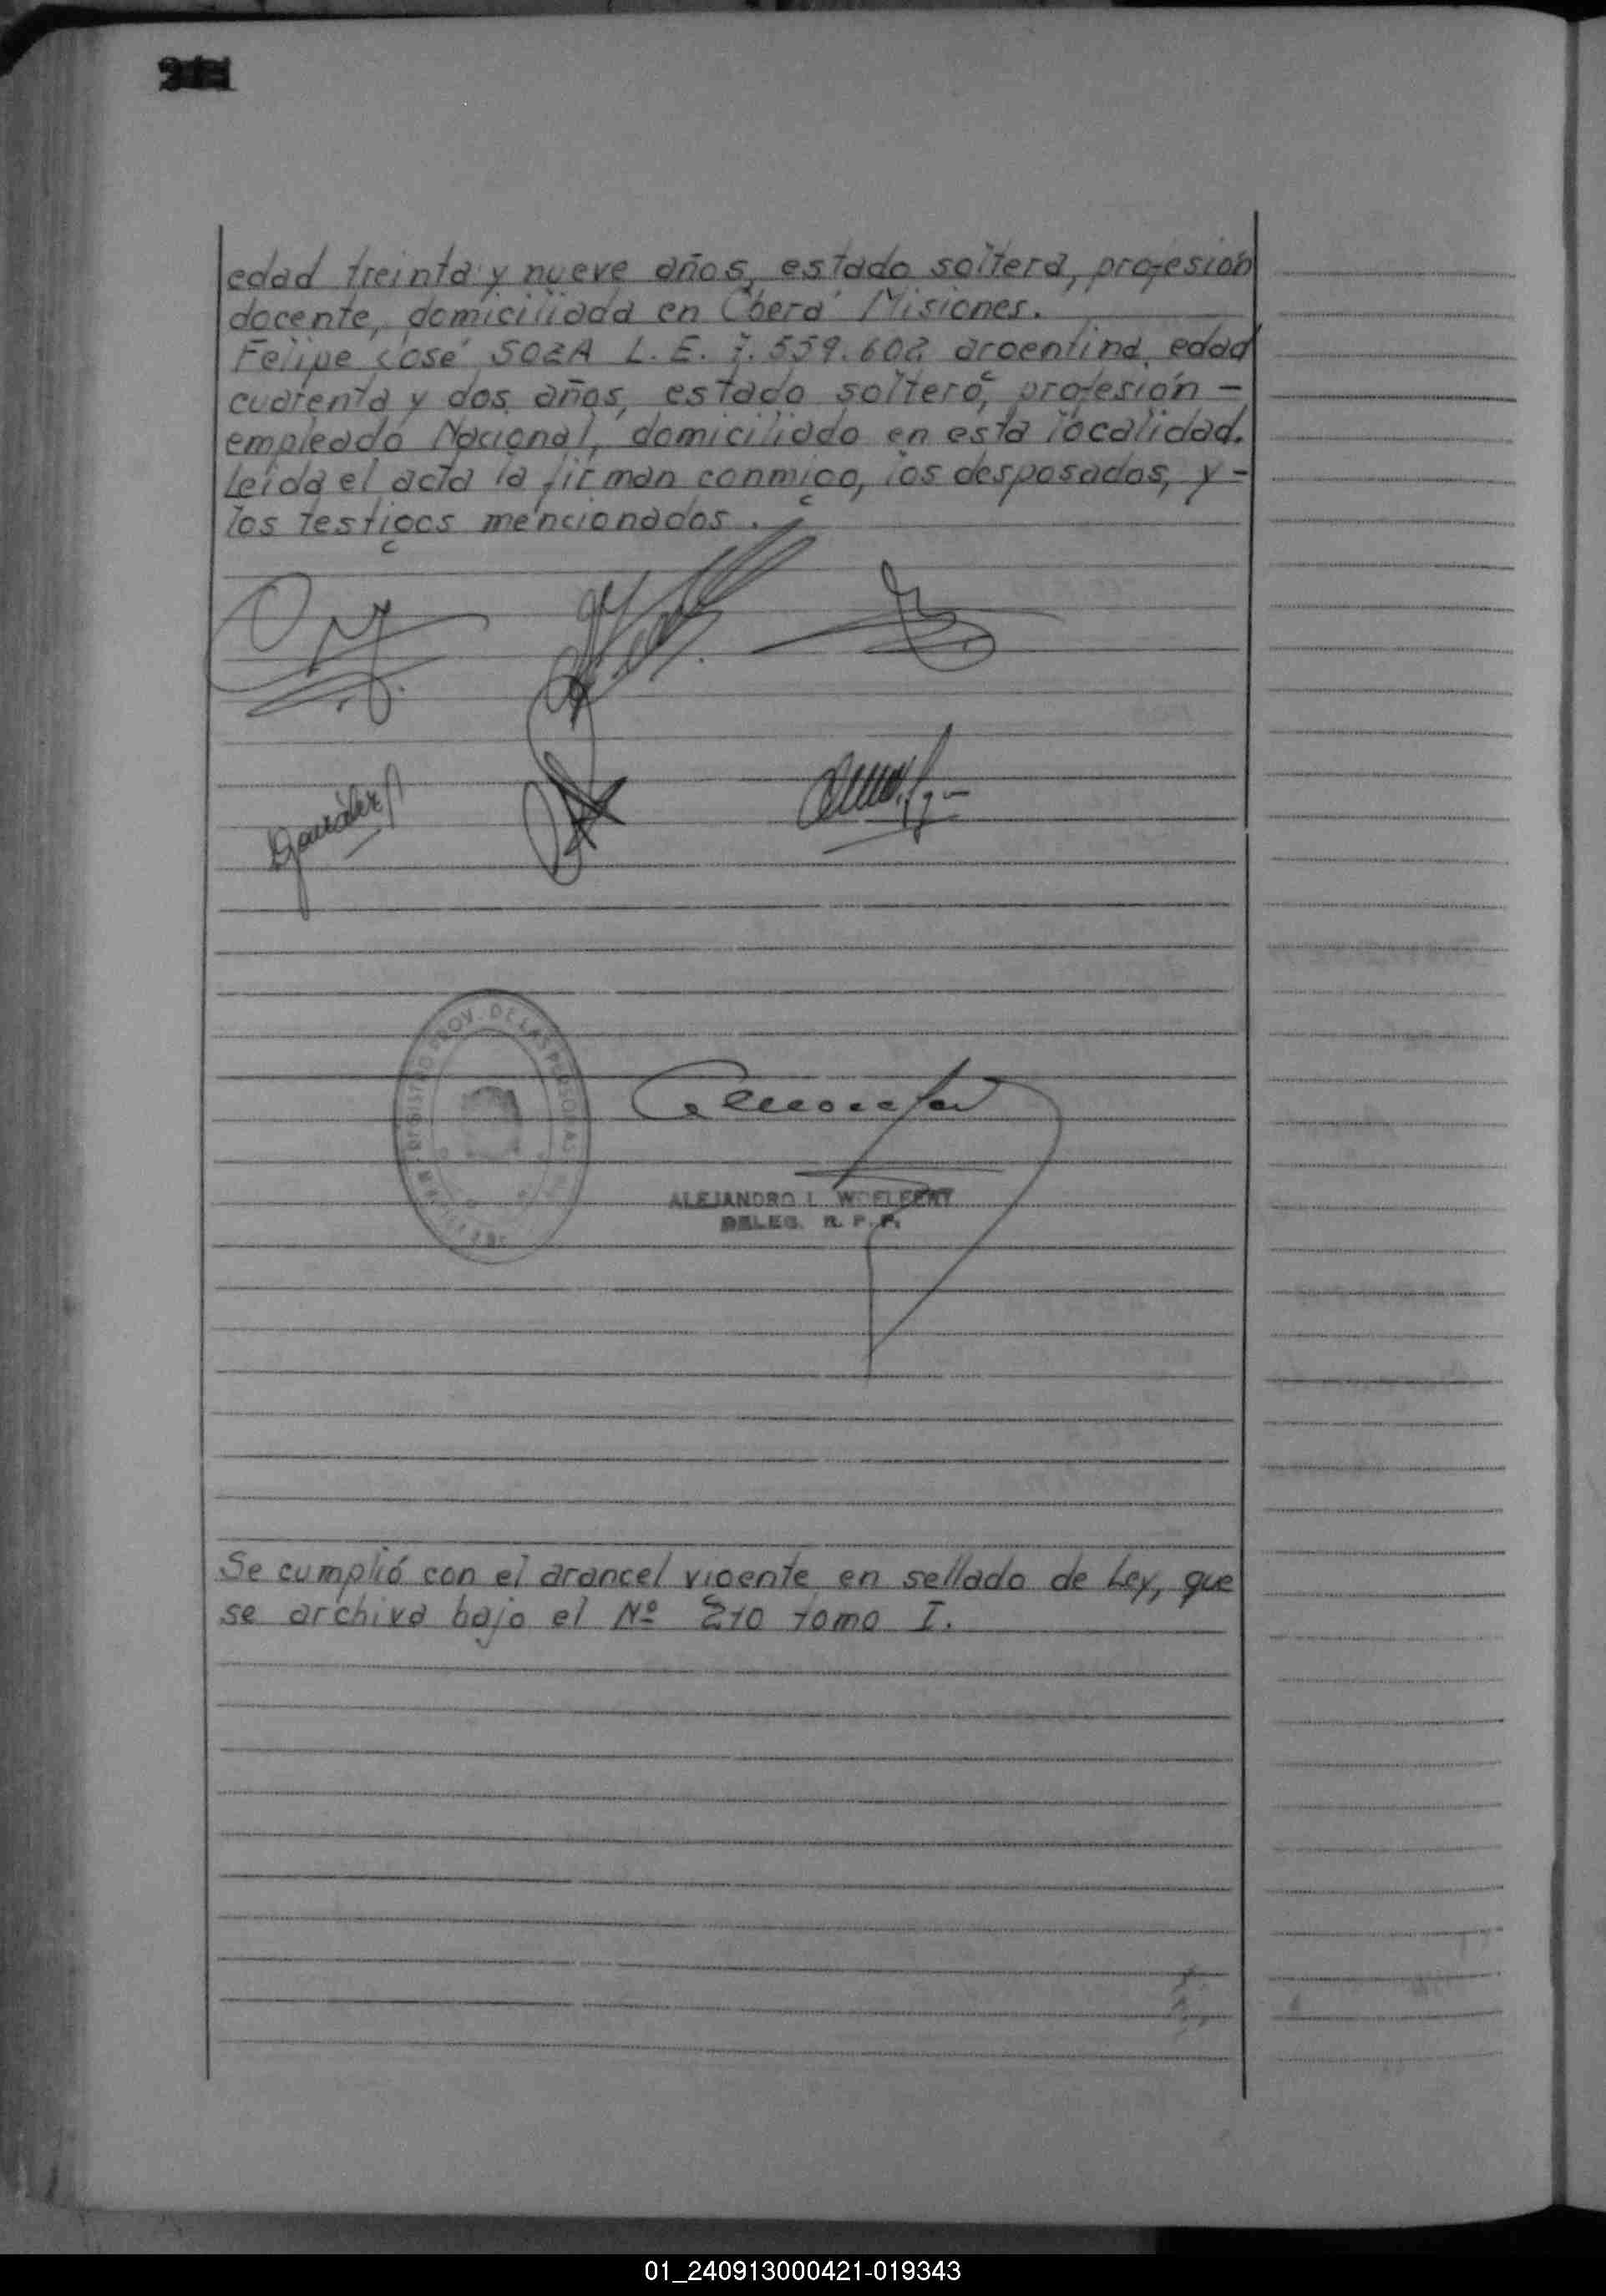 edad treinta y nueve años, estado soltera, profesión
docente, domiciliada en Oberá Misiones.
Felipe José SOZA L. E. 7.559.602 argentina edad
cuarenta y dos años, estado soltero, profesión -
empleado Nacional, domiciliado en esta localidad.
Leída el acta la firman conmigo, los desposados, y -
los testigos mencionados.
González
REGISTRO PROV. DE LAS PERSONAS
ALEJANDRO L. WOELFERT
DELEG. R. P. P.
Se cumplió con el arancel vigente en sellado de Ley, que
se archiva bajo el Nº 210 tomo I.
01_240913000421-019343